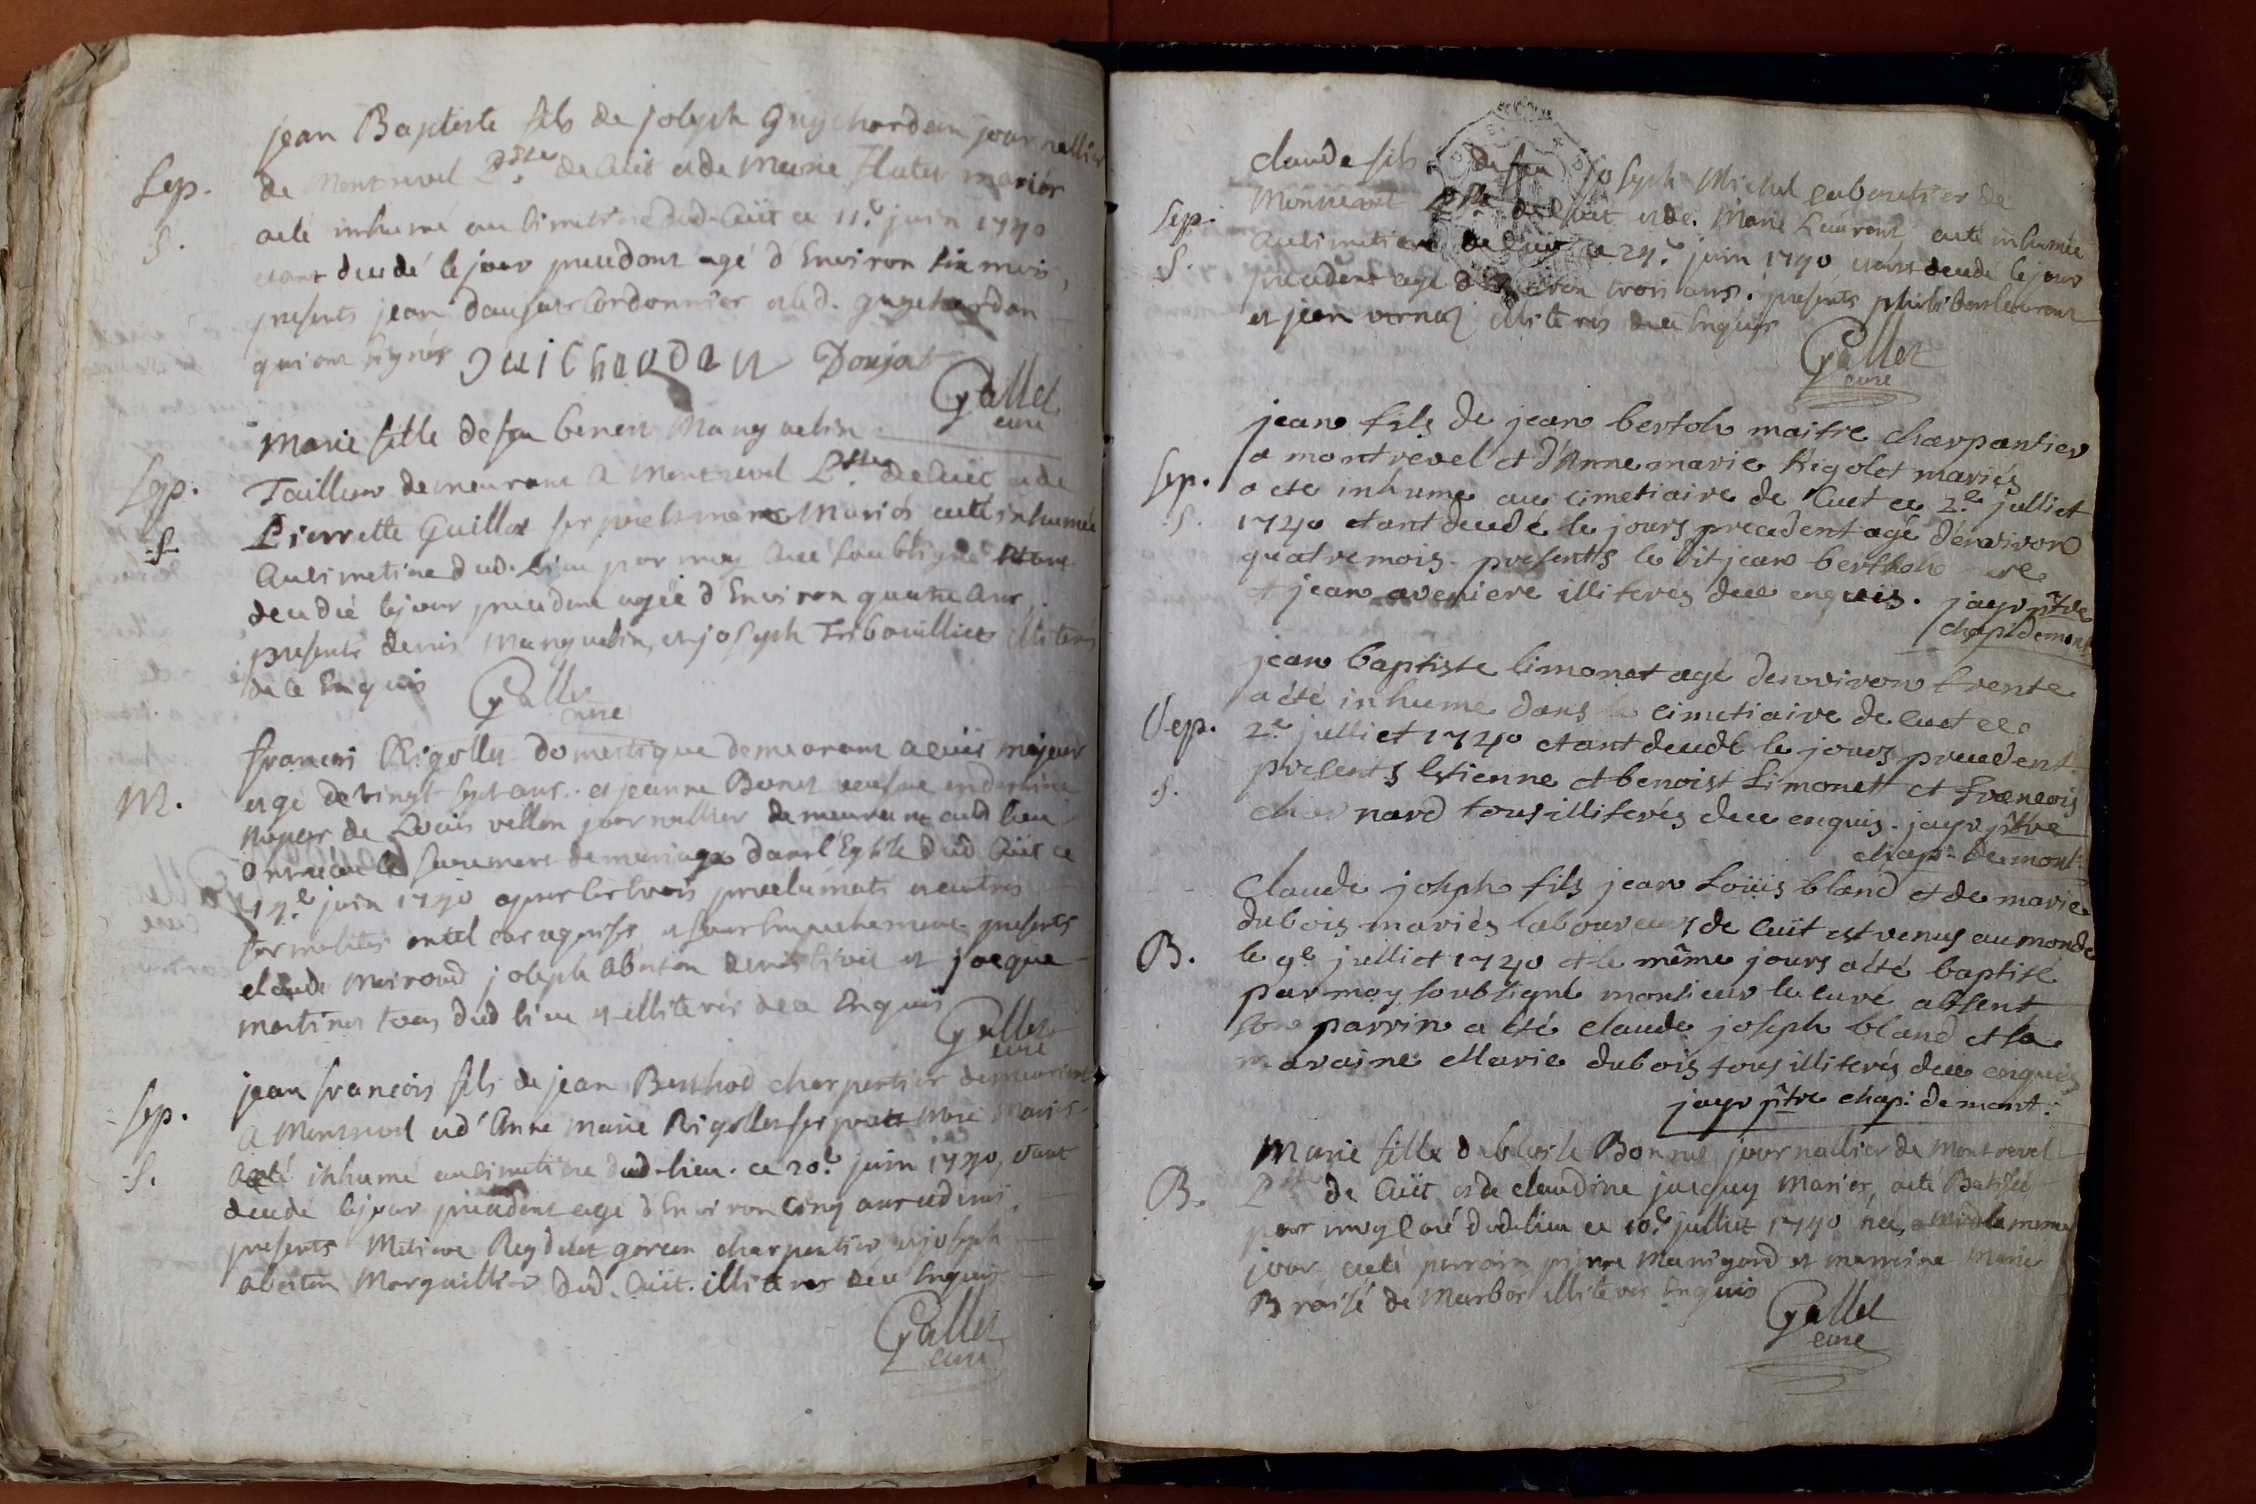 jean Baptiste fils de joseph Guychardan journallier
Sep. de Montrevel P.sse de Cuit et de Marie mariés
S. a eté inhumé au cimetiere dud. Cuit ce 11.e juin 1740
etant decedé le jour precedent agé d'Environ six mois,
presents jean Cordonnier et led. guychardan
qui ont signés GUICHARDAN Donjat
Gallet
curé
Marie fille de feu benoit Manguelin
Sep. Tailleur demeurant a Montrevel P.sse de Cuit et de
S. Pierrette Guillot ses pere et mere Mariés a eté inhumée
au cimetiere dud. lieu par moy Curé soubsigné etant
decedée le jour precedent agée d'Environ quatre ans,
presents denis Manguelin, et joseph Tribouillet illiterés
de ce Enquis
Gallet
curé
francois Rigollet domestique demeurant a cuit majeur
M. agé de vingt sept ans et jeanne Bonet veufve
de Louis villon journallier demeurant aud. lieu
Ont recu le sacrement de mariage dans l'Eglise dud. Cuit ce
14.e juin 1740 apres les trois proclamats et autres
formalités en tel cas requises et sans Empechement presents
claude Moiroud joseph Abaton denis et jacque
martinet tous dud. lieu et illiterés de ce Enquis
Gallet
curé
jean francois fils de jean Berthod charpentier demeurant
Sep. A Montrevel et d'Anne Marie Rigollet ses pere et Mere Mariés
S. a eté inhumé au cimetiere dud. lieu. ce 20.e juin 1740, etant
decedé le jour precedent agé d'Environ Cinq ans et demi,
presents Reydelet garcon charpentier et joseph
abaton Marguillier dud. Cuit. illiterés de ce Enquis
Gallet
curé
claude fils de feu joseph Michel cabaretier de
Sep. Montrevel P.sse de Cuit et de Marie Laurent a eté inhumée
S. au cimetiere de Cuit ce 24.e juin 1740, etant decedé le jour
precedent agé d'Environ trois ans. presents philibert laurent
et jean vernaz illiterés de ce Enquis
Gallet
curé
jean fils de jean bertoh maitre charpantier
a montrevel et d'Anne marie Rigolet mariés
Sep. a eté inhumé au cimetiaire de Cuet ce 2.e julliet
S. 1740 etant decedé le jours precedent agé d'envivon
quatre mois. presents le dit jean berthoh
et jean aveniere illiterés de ce enquis. jayr ptre
chap: de mont
jean baptiste limonet agé d'envivon trente
a été inhumé dans le cimetiaire de cuet ce
Sep. 2.e julliet 1740 etant decedé le jours precedent.
S. presents Estienne et benoist Limonett et francois
nard tous illiterés de ce enquis. jayr ptre
chap: de mont:
Claude joseph fils jean Loüis bland et de marie
dubois mariés laboureurs de cuit est venus au monde
B. le 9.e julliet 1740 et le même jours a eté baptisé
par moy soubsigné monsieur le curé absent
son parrin a été claude joseph bland et sa
maraine Marie dubois tous illiterés de ce enquis
jayr ptre chap: de mont:
Marie fille de blaise Bonnet journallier de Montrevel
B. P.sse de Cuit et de claudine jacquy Mariés, a eté Batisée
par moy Curé dud. lieu ce 10.e julliet 1740 née, le meme
jour, a eté parrain pierre Manigand et marraine Marie
Braisé de Marboz illiterés Enquis
Gallet
curé